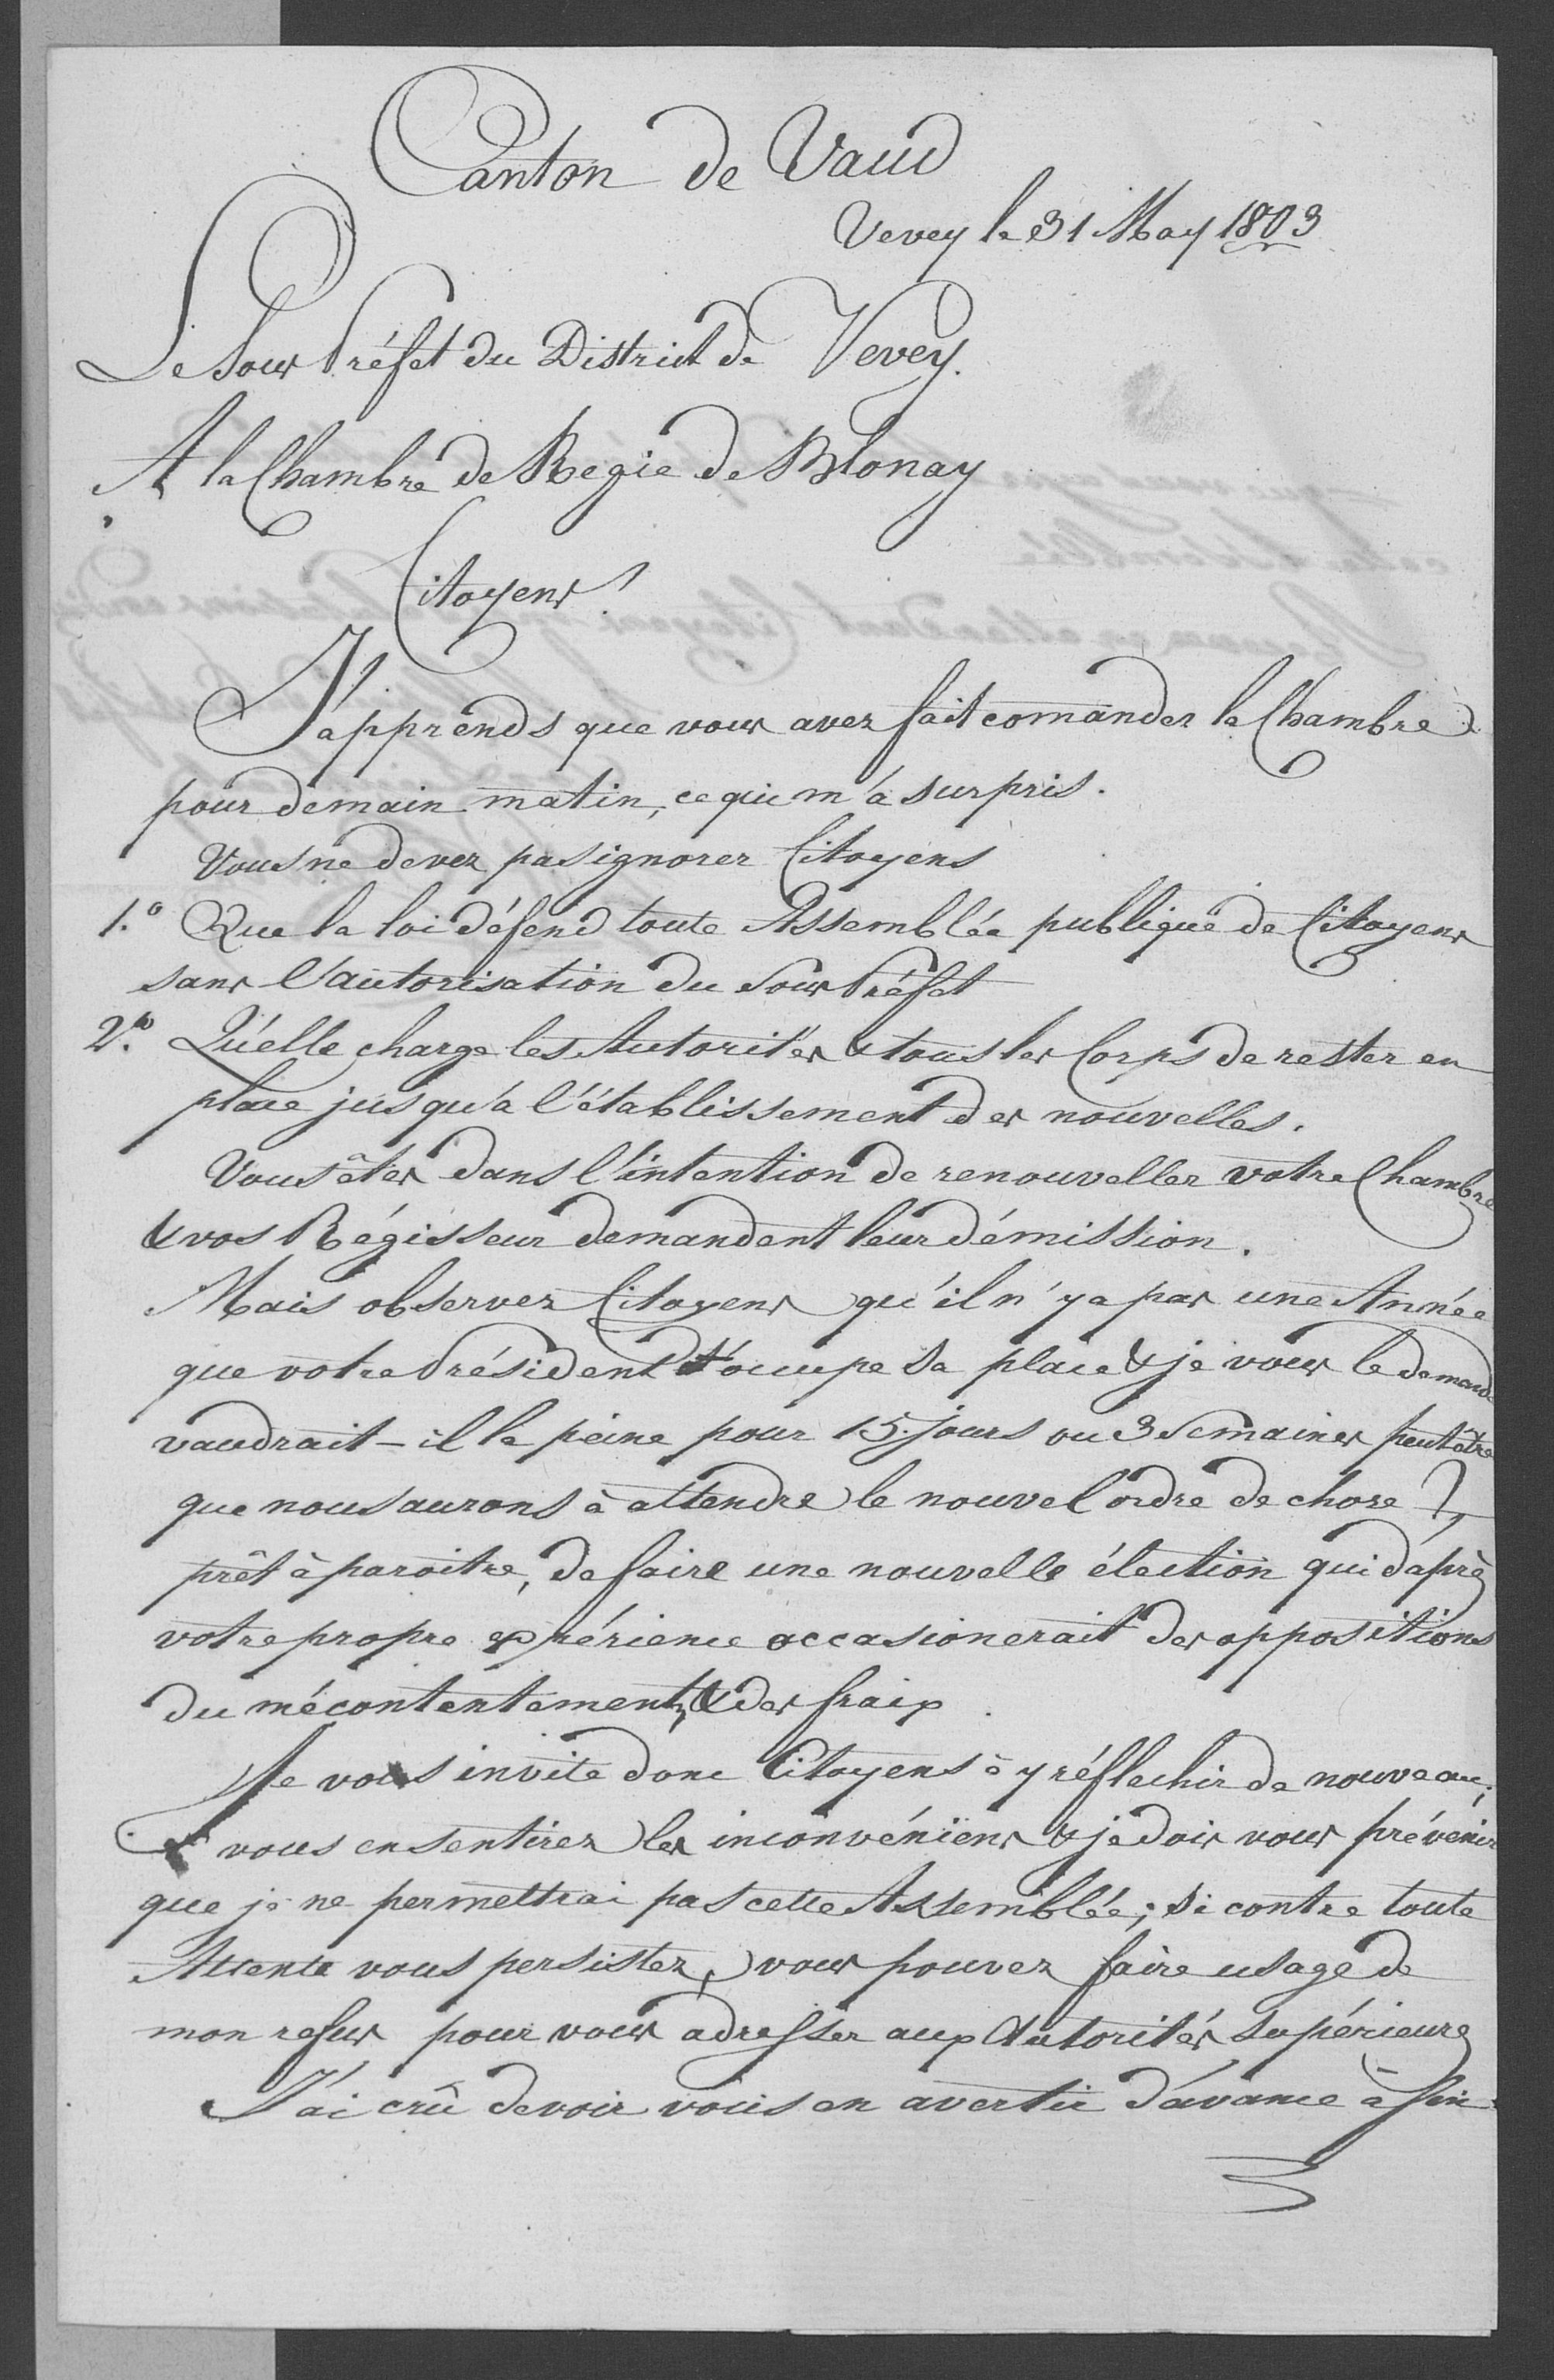 Canton de Vaud
Vevey le 31 May 1803
Le Sous Préfet du District de Vevey.
A la Chambre de Régie de Blonay
Citoyens!
J'apprends que vous avez fait comander la Chambre
pour demain matin, ce qui m'a surpris.
Vous ne devez pas ignorer Citoyens
1.o Que la loi défend toute Assemblée publique de Citoyens
sans l'autorisation du Sous Préfet
2.o Qu'elle charge les Autorités & tous les Corps de rester en
place jusqu'à l'établissement des nouvelles.
Vous êtes dans l'intention de renouveller votre Chambre
& vos Régisseur demandent leur démission.
Mais observez Citoyens qu'il n'y a pas une Année
que votre Président occupe sa place & je vous le demande
vaudrait-il la peine pour 15. jours ou 3 Semaines peutêtre
que nous aurons à attendre le nouvel ordre de chose
prêt à paroitre, de faire une nouvelle élection qui d'après
votre propre expérience occasionerait des oppositions
du mécontentement, & des fraix.
Je vous invite donc Citoyens à y réflechir de nouveau;
vous en sentirez les inconvéniens & je dois vous prévénir
que je ne permettrai pas cette Assemblée; si contre toute
Attente vous persistez, vous pouvez faire usage de
mon refus pour vous adresser aux Autorités supérieures
J'ai crû devoir vous en avertir d'avance à fin